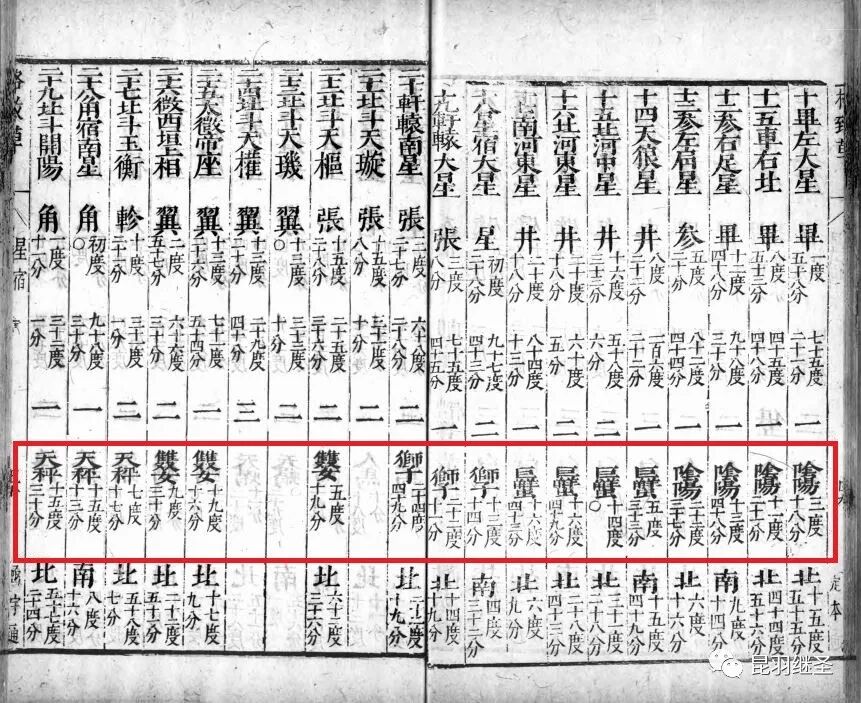 十畢左大星 畢 一度五十八分 七十五度二十二分 一 陰陽 三度十八分 北 十五度五十五分
十一五車右北 畢 八度五十三分 四十五度四十八分 一 陰陽 十二度十一分 北 四十四度五十六分
十二參右足星 畢 十二度四十八分 九十八度三十分 一 陰陽 十二度四十八分 南 九度十四分
十三參左肩星 參 五度二十分 八十二度四十四分 一 陰陽 二十三度三十七分 北 六度十六分
十四天狼星 井 八度二十二分 一百六度二十二分 一 巨蟹 五度三十三分 南 十五度四十九分
十五北河中星 井 十六度三十三分 五十八度六分 二 巨蟹 十四度〇 北 三十二度二十八分
十六北河東星 井 二十度五分 六十度十分 二 巨蟹 十六度四十九分 北 二十八度十八分
十七南河東星 井 二十度十八分 八十四度十三分 一 巨蟹 十六度四十三分 北 六度九分
十八星宿大星 星 初度二十六分 九十七度二十二分 二 獅子 十三度十四分 南 四度三十二分
十九軒轅大星 張 三度八分 七十五度四十五分 一 獅子 二十二度十一分 北 十四度十九分
二十軒轅南星 張 二度二十七分 六十八度二十八分 二 獅子 二十四度四十九分 北 二十二度十九分
二十一北斗天璇 張 十五度八分 三十二度十分 二
二十二北斗天樞 張 十五度二十八分 二十五度三十六分 二 雙女 五度九分 北 六十三度三十六分
二十三北斗天璣 翼 十三度〇 三十三度十分 二
二十四北斗天權 翼 十三度二十分 二十九度四十六分 三
二十五太微帝座 翼 十三度二十六分 七十二度五十四分 一 雙女 十九度十六分 北 十七度九分
二十六微西垣上相 翼 二度五十七分 六十七度三十分 二 雙女 九度三十分 北 二十二度五十八分
二十七北斗玉衡 軫 十度二十一分 三十二度一分 二 天秤 七度十七分 北 五十八度七分
二十八角宿南星 角 初度〇 九十八度三十分 一 天秤 十五度十三分 南 八度十六分
二十九北斗開陽 角 一度十一分 三十二度一分 二 天秤 十五度三十分 北 五十七度二十四分
星宿
昆羽继圣